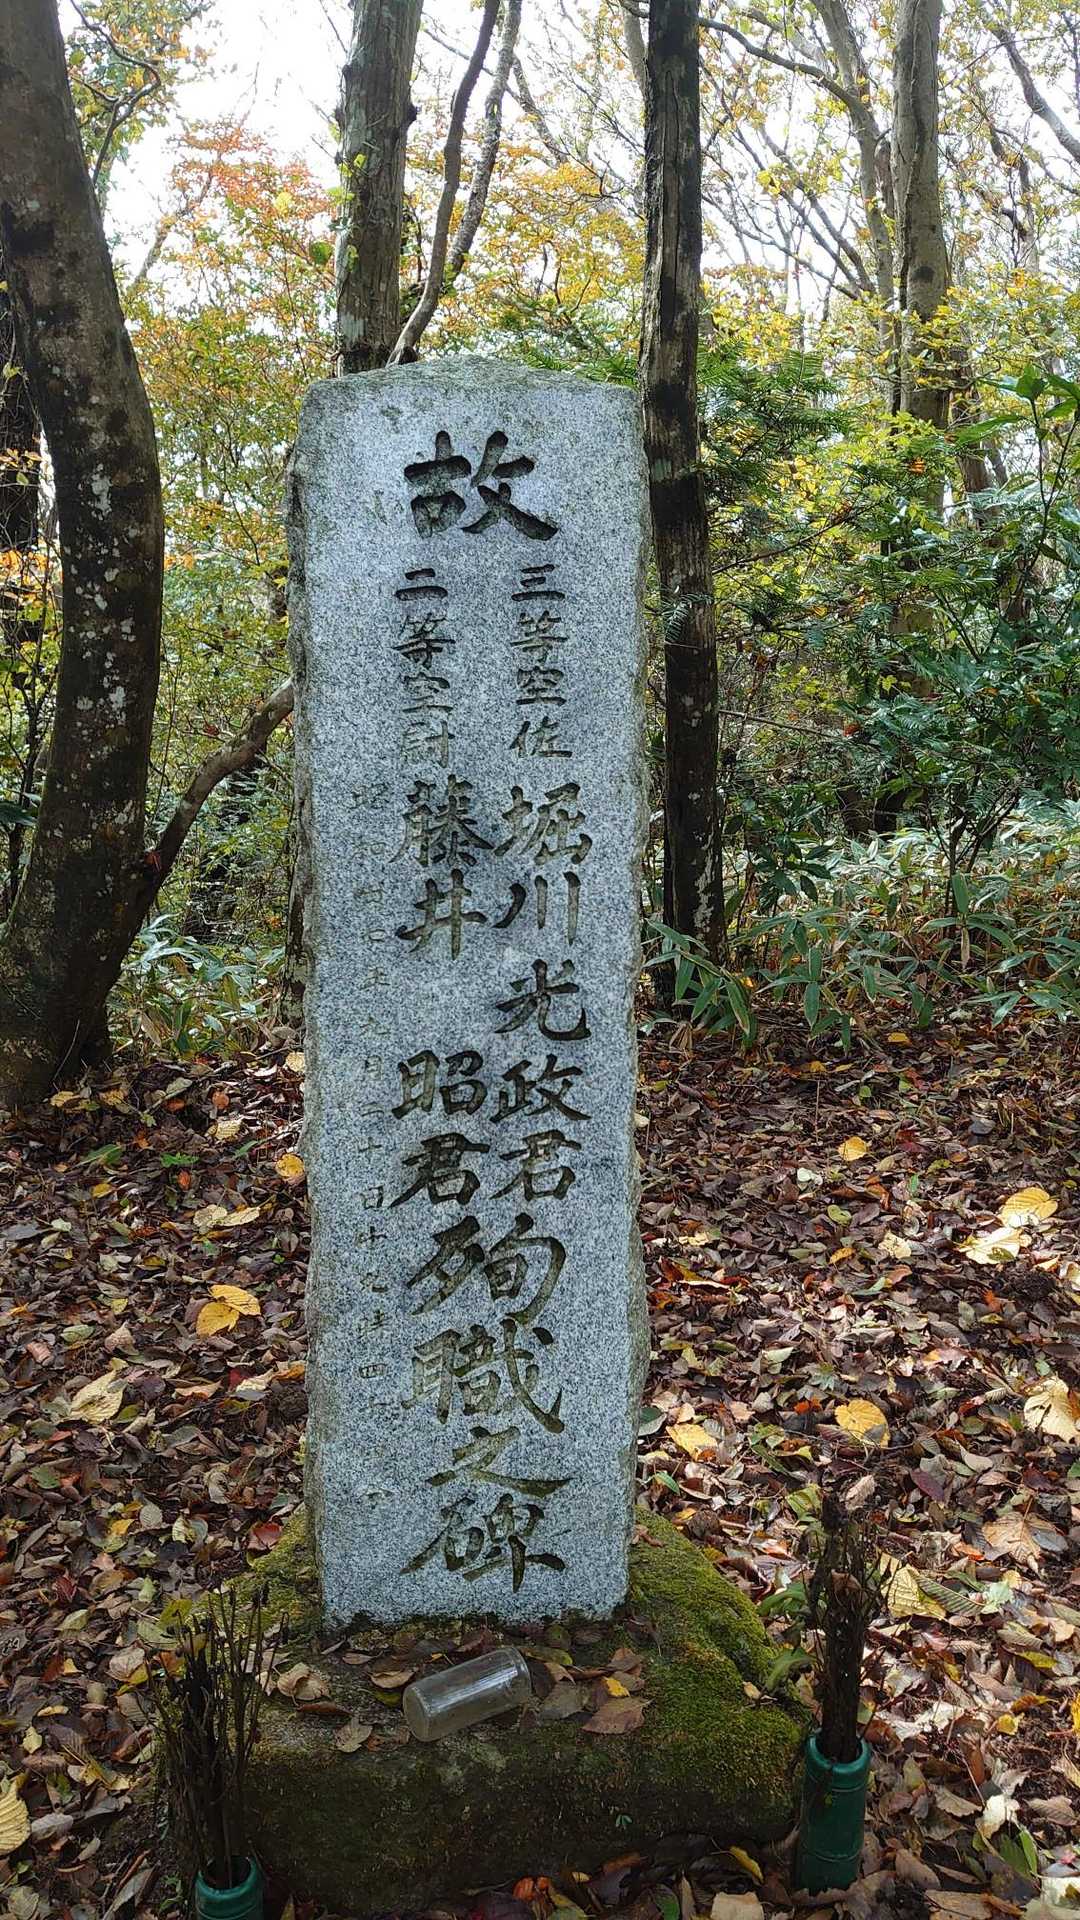 故
三等空佐 堀川光政君
二等空尉 藤井 昭君
殉職之碑
昭和四十年九月二十日十九時四十